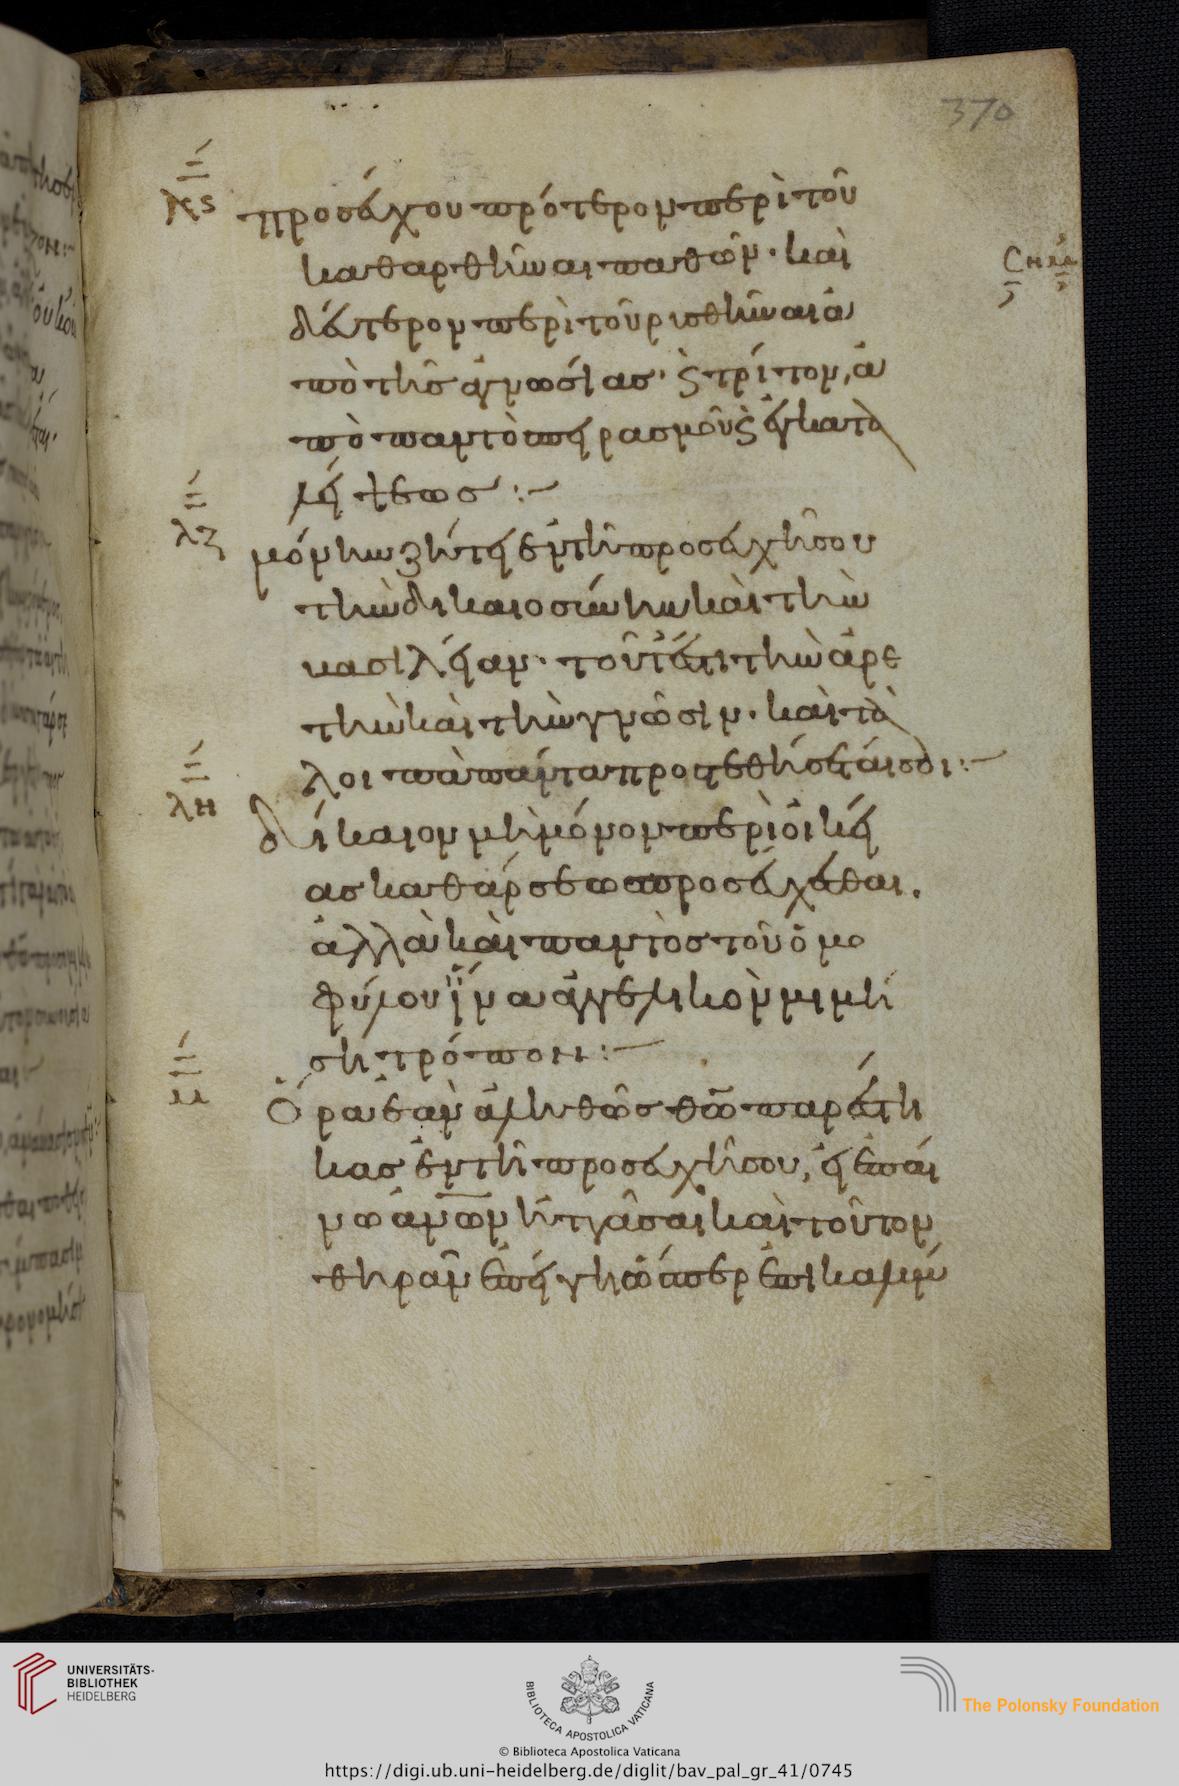 370
λς προσεύχου πρότερον περὶ τοῦ
καθαρθῆναι παθῶν. καὶ
δεύτερον περὶ τοῦ ρυσθῆναι ἀ
πὸ τῆς ἀγνωσίας. ϛ τρίτον, ἀ
πὸ παντὸς πειρασμοῦ ϛ ἐγκατα
λείψεως :~
λζ μόνην ζήτει ἐν τῆ προσευχῆ σου
τὴν δικαιοσύνην καὶ τὴν
βασιλείαν. τουτέστι τὴν ἀρε
τὴν καὶ τὴν γνῶσιν. καὶ τὰ
λοιπὰ πάντα προστεθήσεταί σοι :~
λη δίκαιον μὴ μόνον περὶ οἰκεί
ας καθάρσεως προσεύχεσθαι.
ἀλλὰ καὶ παντὸς τοῦ ὁμο
φύλου ἵνα ἀγγελικὸν μιμή
ση τρόπον :~
Ὅρα ἐὰν ἀληθῶς θῶ παρέστη
κας ἐν τῆ προσευχῆ σου, ἢ ἐπαί
νω ἀνων ἡττᾶσαι καὶ τοῦτον
θηρᾶν ἐπείγη ὥσπερ ἐπικαλύμ
UNIVERSITÄTS-
BIBLIOTHEK
HEIDELBERG
BIBLIOTECA APOSTOLICA VATICANA
The Polonsky Foundation
© Biblioteca Apostolica Vaticana
https://digi.ub.uni-heidelberg.de/diglit/bav_pal_gr_41/0745